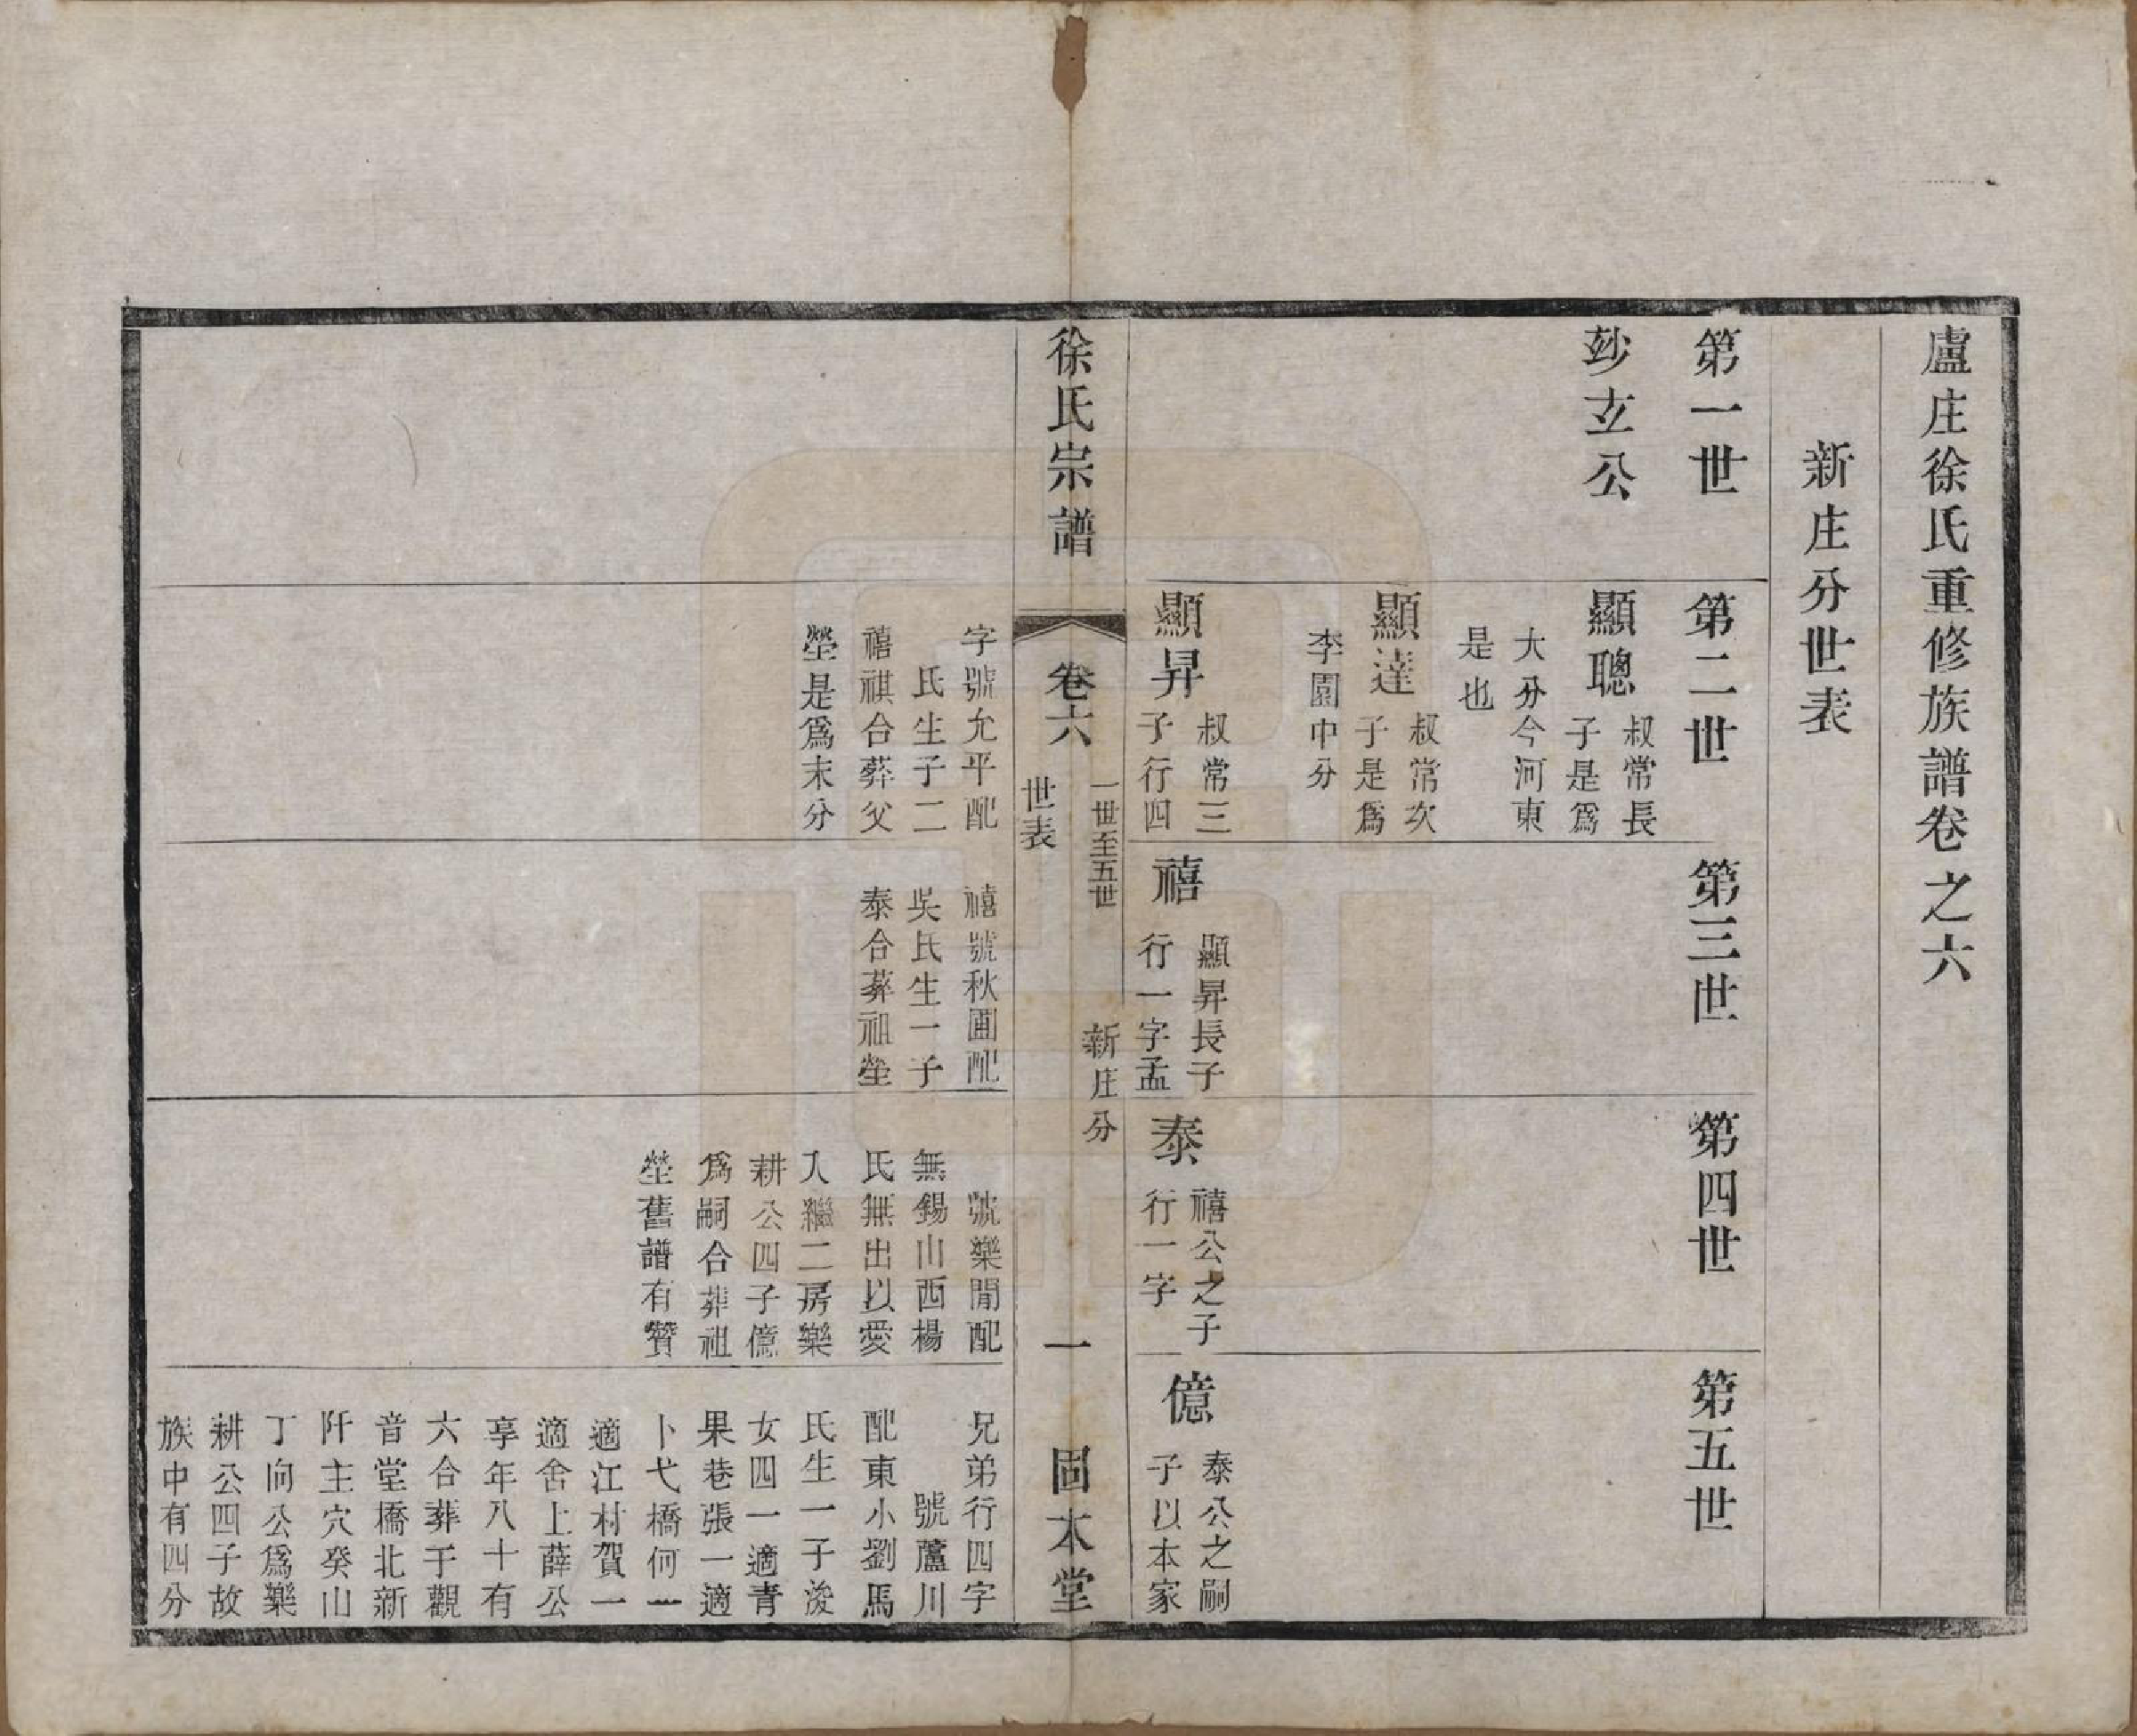 盧庄徐氏重修族譜卷之六
新庄分世表
第一世
玅玄公
第二世
顯聰
叔常長
子是爲
大分今河東
是也
顯達
叔常次
子是爲
李園中分
顯昇
叔常三
子行四
字號允平配
氏生子二
禧祺合葬父
塋是爲末分
第三世
禧
顯昇長子
行一字孟
禧號秋圃配
吳氏生一子
泰合葬祖塋
第四世
泰
禧公之子
行一字
號樂閒配
無錫山西楊
氏無出以愛
入繼二房樂
耕公四子億
爲嗣合葬祖
塋舊譜有贊
第五世
億
泰公之嗣
子以本家
兄弟行四字
號蘆川
配東小劉馬
氏生一子浚
女四一適青
果巷張一適
卜弋橋何一
適江村賀一
適舍上薛公
享年八十有
六合葬于觀
音堂橋北新
阡主穴癸山
丁向公爲樂
耕公四子故
族中有四分
徐氏宗譜
卷六
一世至五世
世表
新庄分
一
固本堂